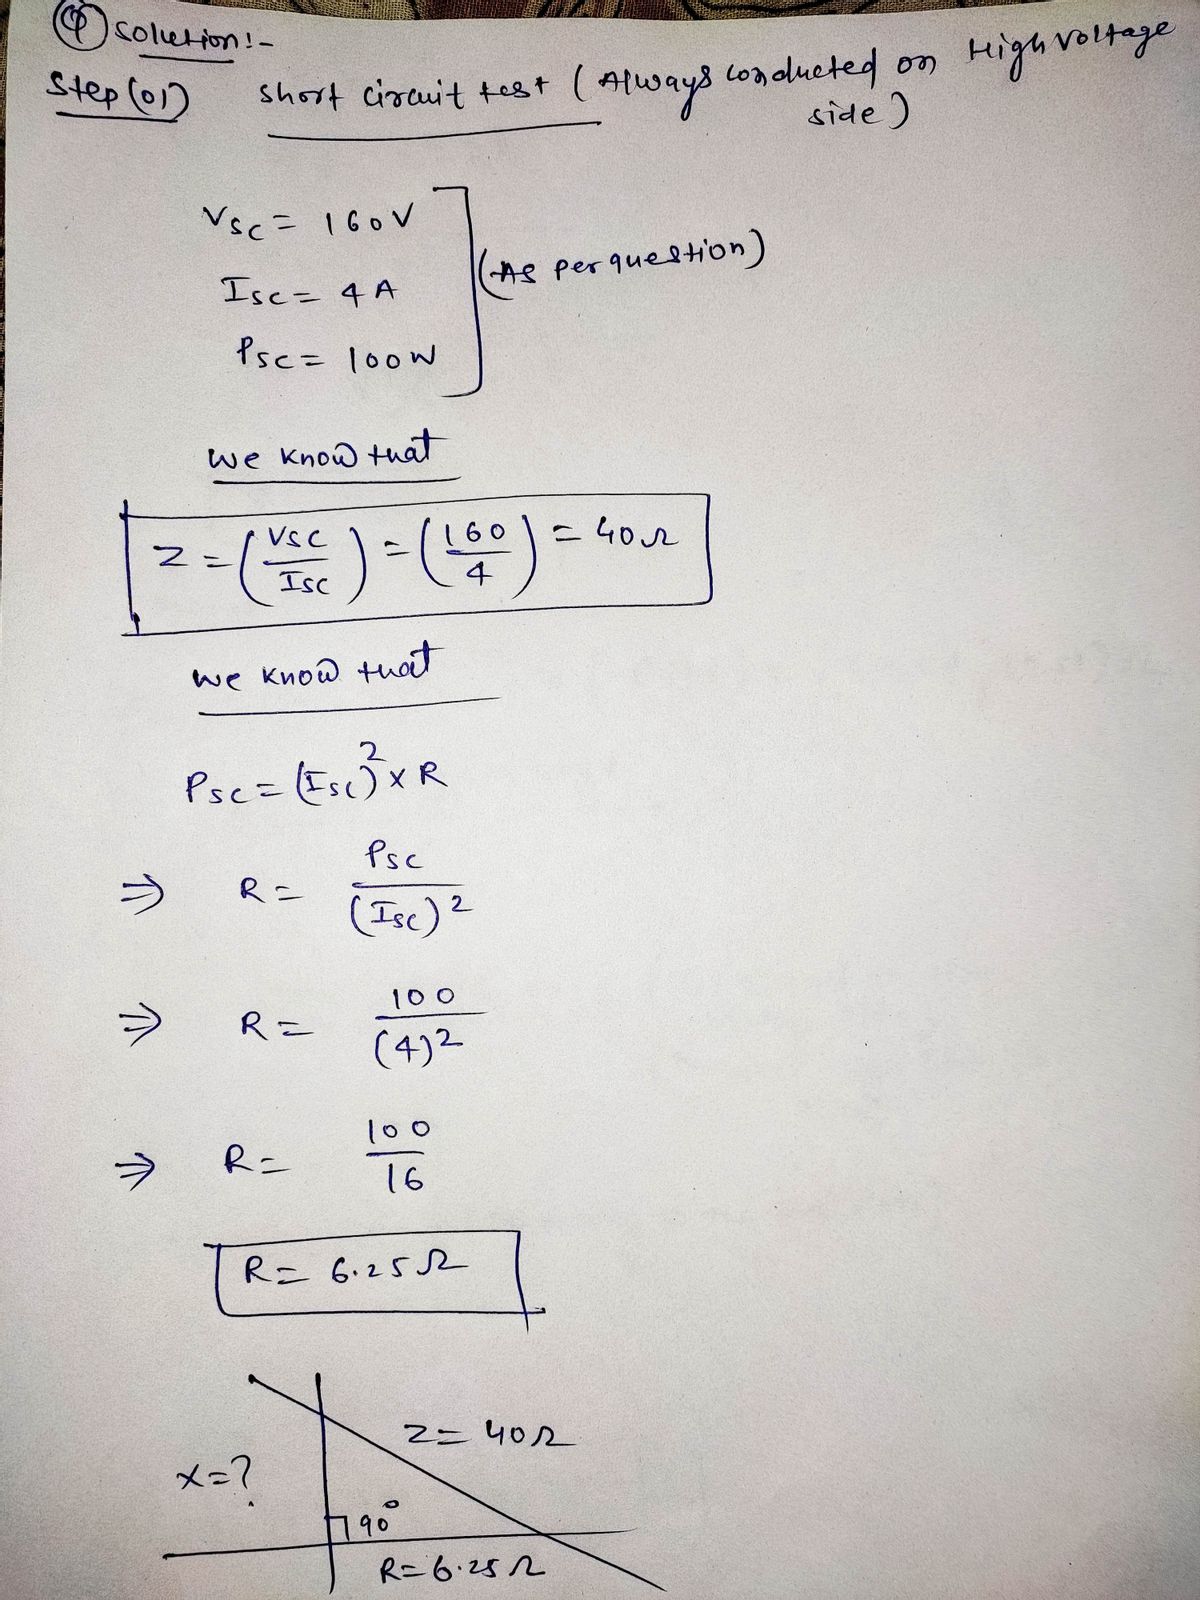 ④ Solution:-
Step (01) Short circuit test (Always conducted on High voltage
side)
Vsc = 160V
Isc = 4 A
(As per question)
Psc = 100W
we know that
Z = (Vsc / Isc) = (160 / 4) = 40Ω
we know that
Psc = (Isc)² × R
⇒ R = Psc / (Isc)²
⇒ R = 100 / (4)²
⇒ R = 100 / 16
R = 6.25Ω
Z = 40Ω
X = ?
90°
R = 6.25Ω